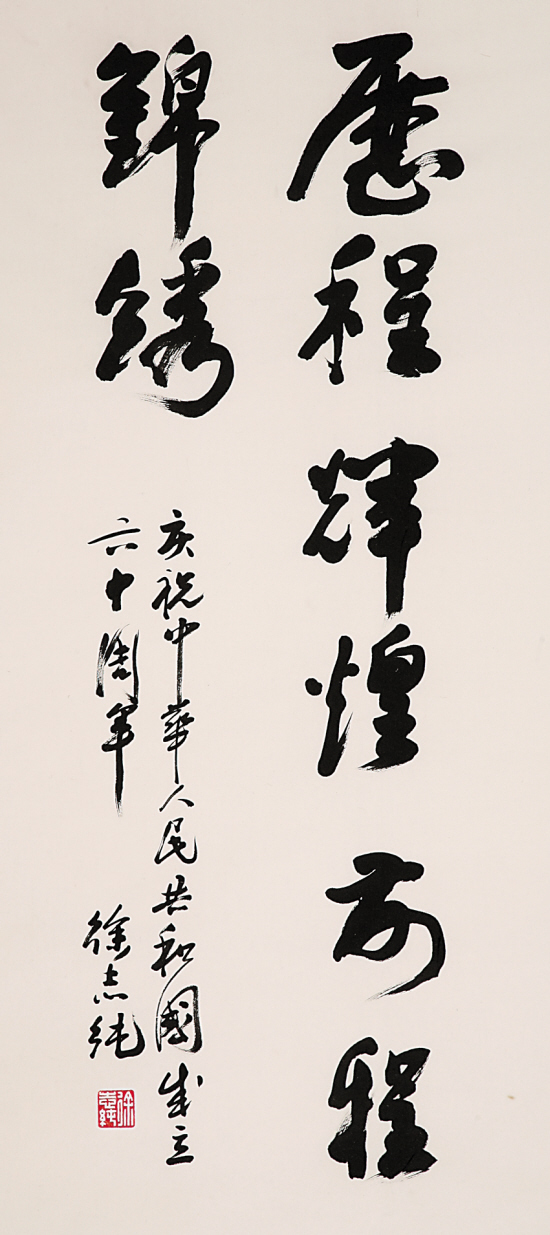 歷程輝煌前程
錦绣
庆祝中華人民共和國成立
六十周年
徐志纯
徐志純